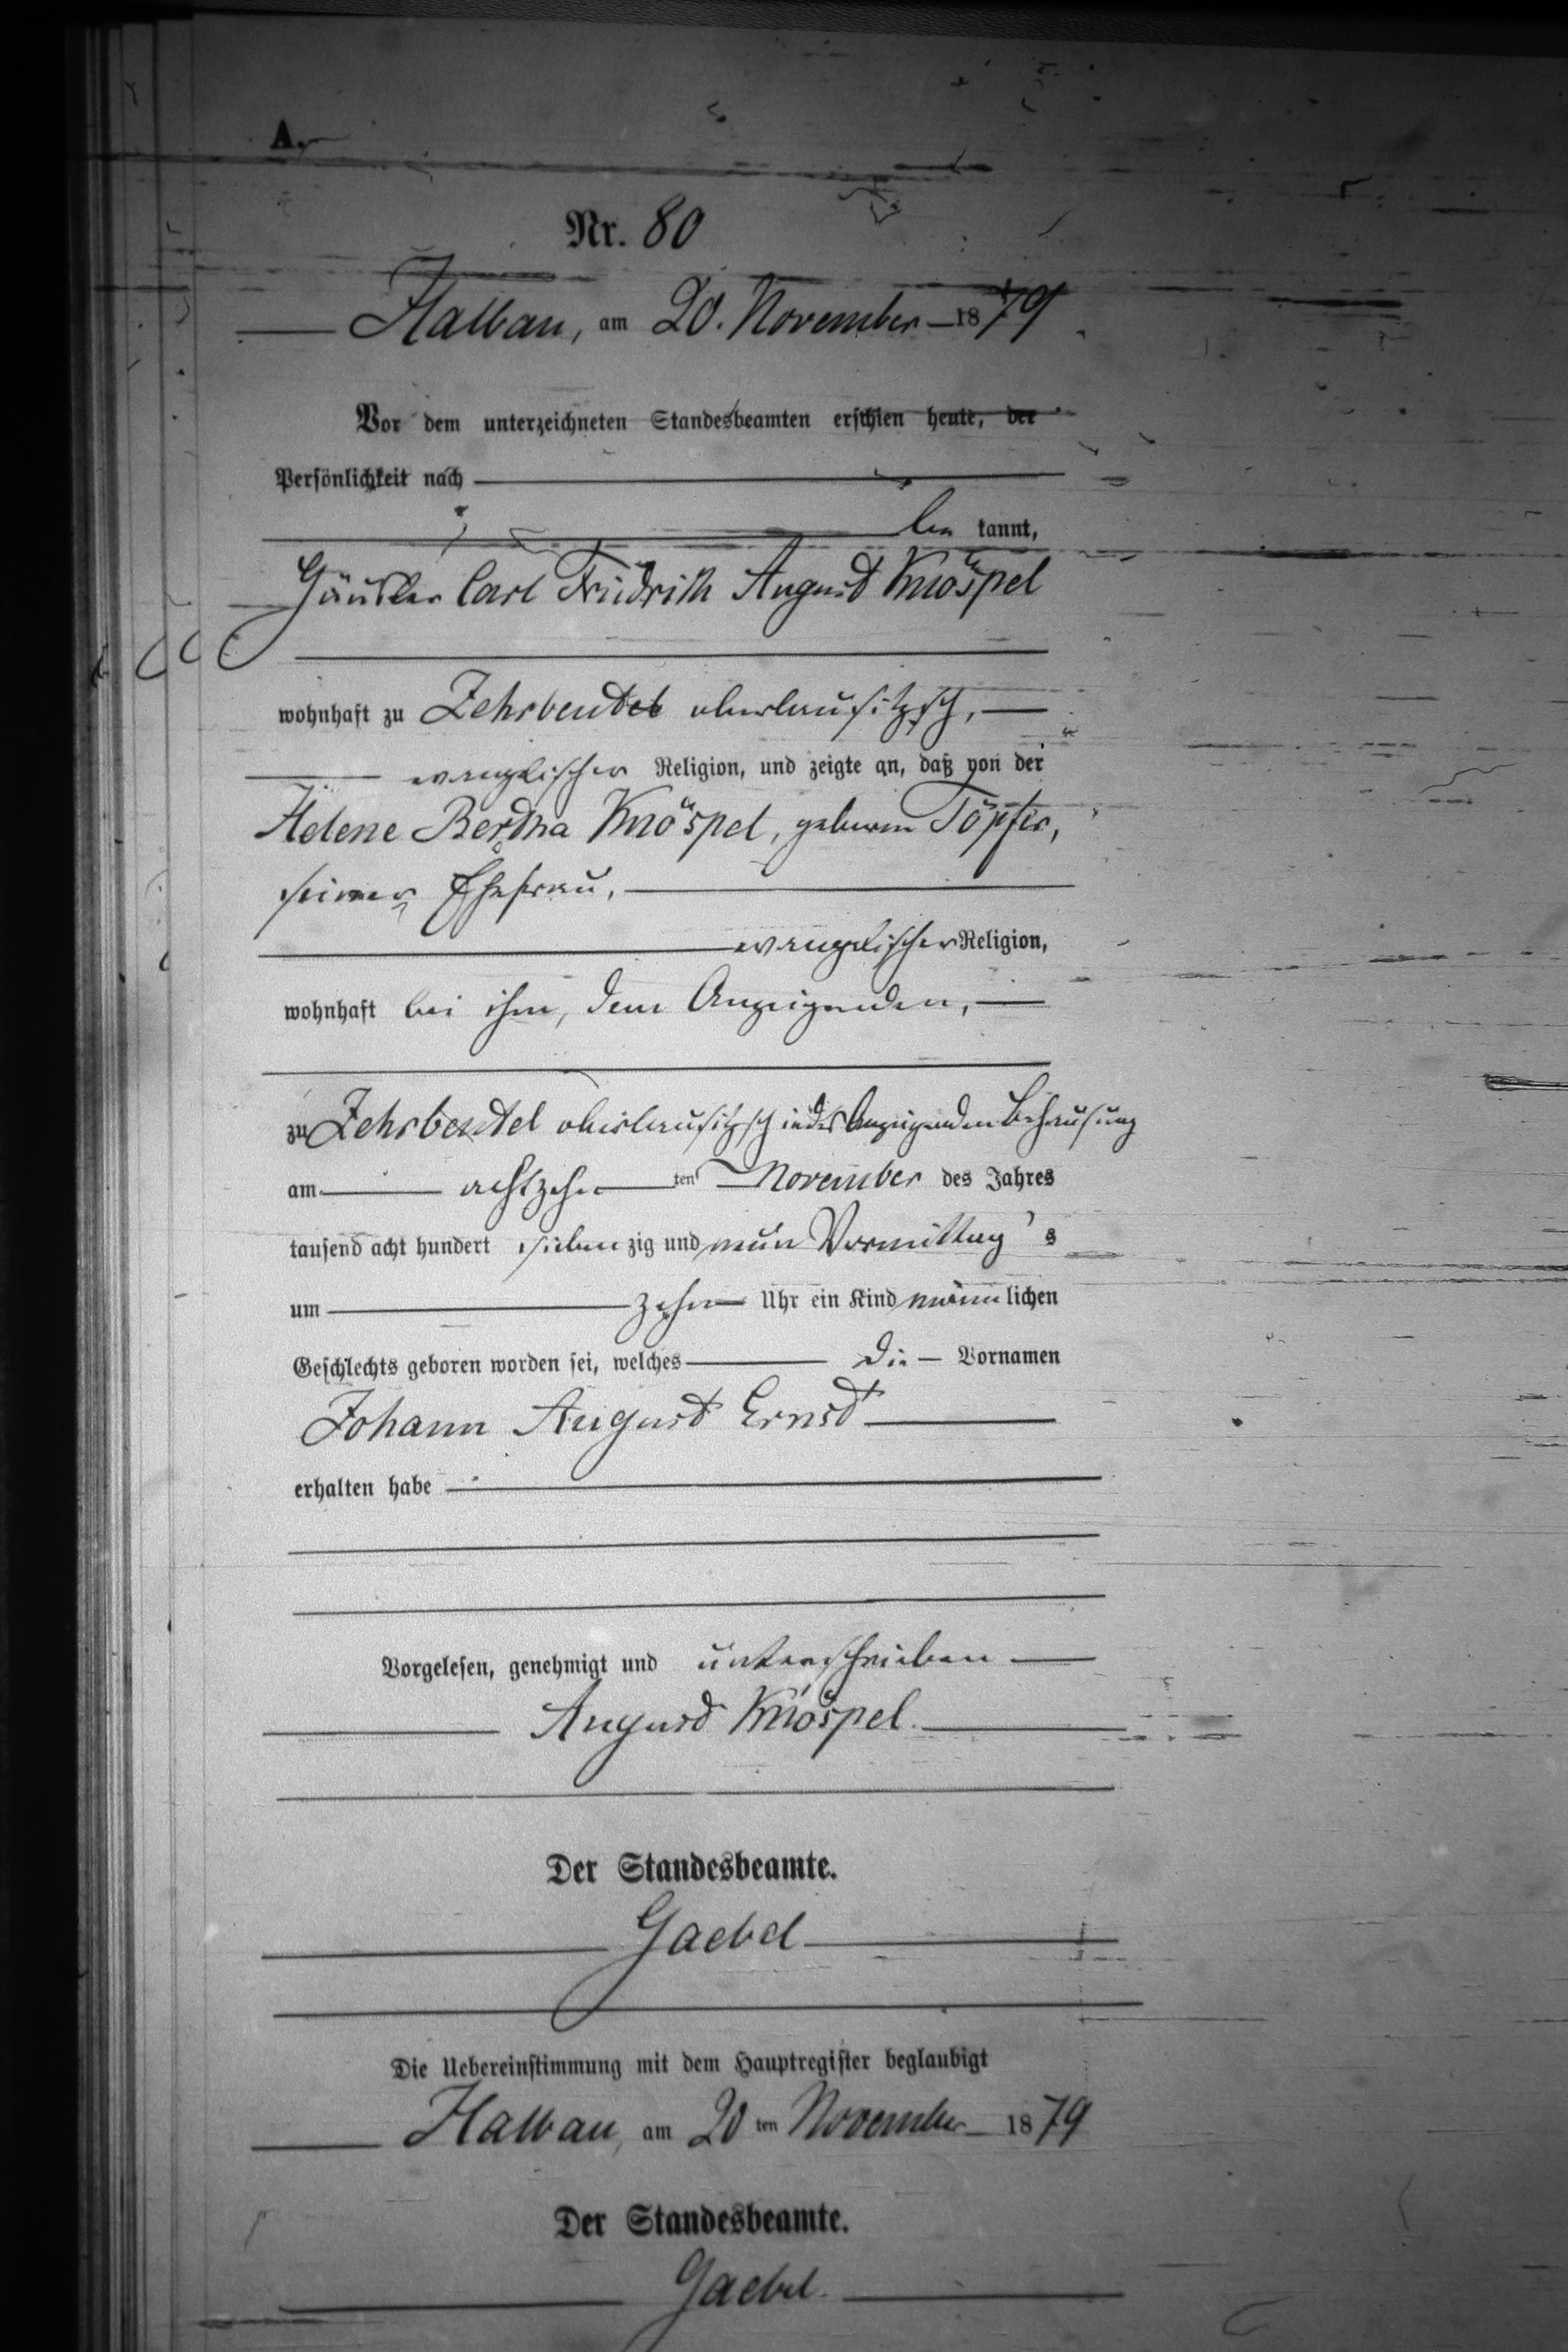 A.
Nr. 80
Halbau, am 20. November 1879
Vor dem unterzeichneten Standesbeamten erschien heute, der
Persönlichkeit nach
be kannt,
Häusler Carl Friedrich August Knöspel
wohnhaft zu Zehrbeutel oberlausitzsch,
evangelischer Religion, und zeigte an, daß von der
Helene Bertha Knöspel, geborene Töpfer,
seiner Ehefrau,
evangelischer Religion,
wohnhaft bei ihm, dem Anzeigenden,
zu Zehrbeutel oberlausitzsch in des Anzeigenden Behausung
am achtzehn ten November des Jahres
tausend acht hundert sieben zig und neun Vormittag s
um zehn Uhr ein Kind männ lichen
Geschlechts geboren worden sei, welches die Vornamen
Johann August Ernst
erhalten habe
Vorgelesen, genehmigt und unterschrieben
August Knöspel.
Der Standesbeamte.
Gaebel
Die Uebereinstimmung mit dem Hauptregister beglaubigt
Halbau, am 20 ten November 1879
Der Standesbeamte.
Gaebel.